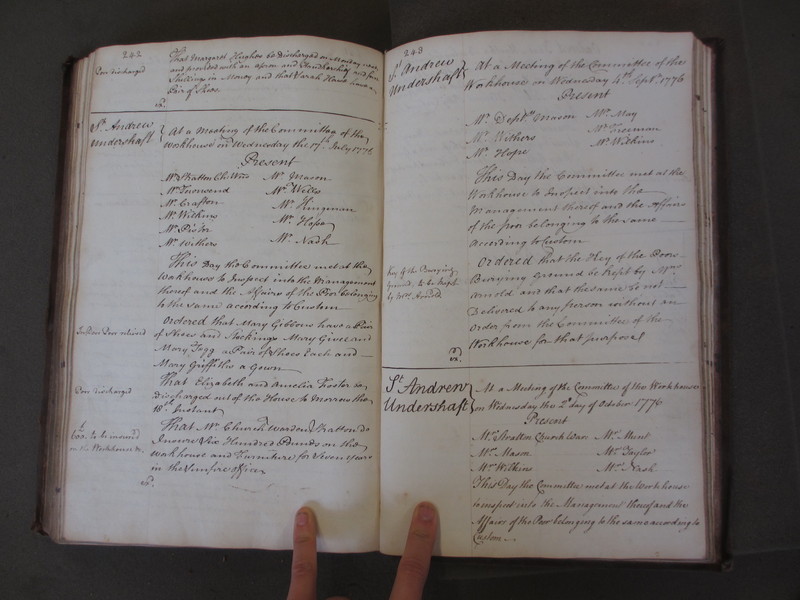 242
Poor discharged
That Margaret Hughes be Discharged on Monday next
and provided with an Apron and Handkerchief and four
Shillings in Money and that Sarah Hawes have a
Pair of Shoes
St. Andrew
Undershaft
At a Meeting of the Committee of the
Workhouse on Wednesday the 17th July 1776
Present
Mr Stratton Ch: Wn Mr Mason
Mr Townsend Mr Wells
Mr Crafton Mr Kingman
Mr Wilkins Mr Hope
Mr Pistor Mr Nash
Mr Withers
This Day the Committee met at the
Workhouse to Inspect into the Management
thereof and the Affairs of the Poor belonging
to the same according to Custom
Indoor Poor relieved
Ordered that Mary Gibbons have a Pair
of Shoes and Stockings Mary Givee and
Mary Fagg a Pair of Shoes Each and
Mary Griffiths a Gown
Poor discharged
That Elizabeth and Amelia Foster be
discharged out of the House to Morrow the
18th Instant
600£. to be insured
on the Workhouse &c.
That Mr. Church warden Stratton do
Insure Six Hundred Pounds on the
Workhouse and Furniture for Seven Years
in the Sun fire Office
243
St Andrew
Undershaft
At a Meeting of the Committee of the
Workhouse on Wednesday 4th Septr. 1776
Present
Mr. Depty Mason Mr. May
Mr. Withers Mr. Freeman
Mr. Hope Mr Wilkins
This Day the Committee met at the
Workhouse to Inspect into the
Management thereof and the Affairs
of the poor belonging to the same
According to Custom
Key of the Burying
Ground, to be kept
by Mrs. Arnold
Ordered that the Key of the Poors
Burying Ground be kept by Mrs.
Arnold and that the same be not
Delivered to any person without an
order from the Committee of the
Workhouse for that purpose
St. Andrew
Undershaft
At a Meeting of the Committee of the Workhouse
on Wednesday the 2d day of October 1776
Present
Mr. Stratton Church War: Mr. Ment
Mr. Mason Mr. Taylor
Mr. Wilkins Mr. Nash
This Day the Committee met at the Workhouse
to inspect into the Management thereof and the
Affairs of the Poor belonging to the same according to
Custom